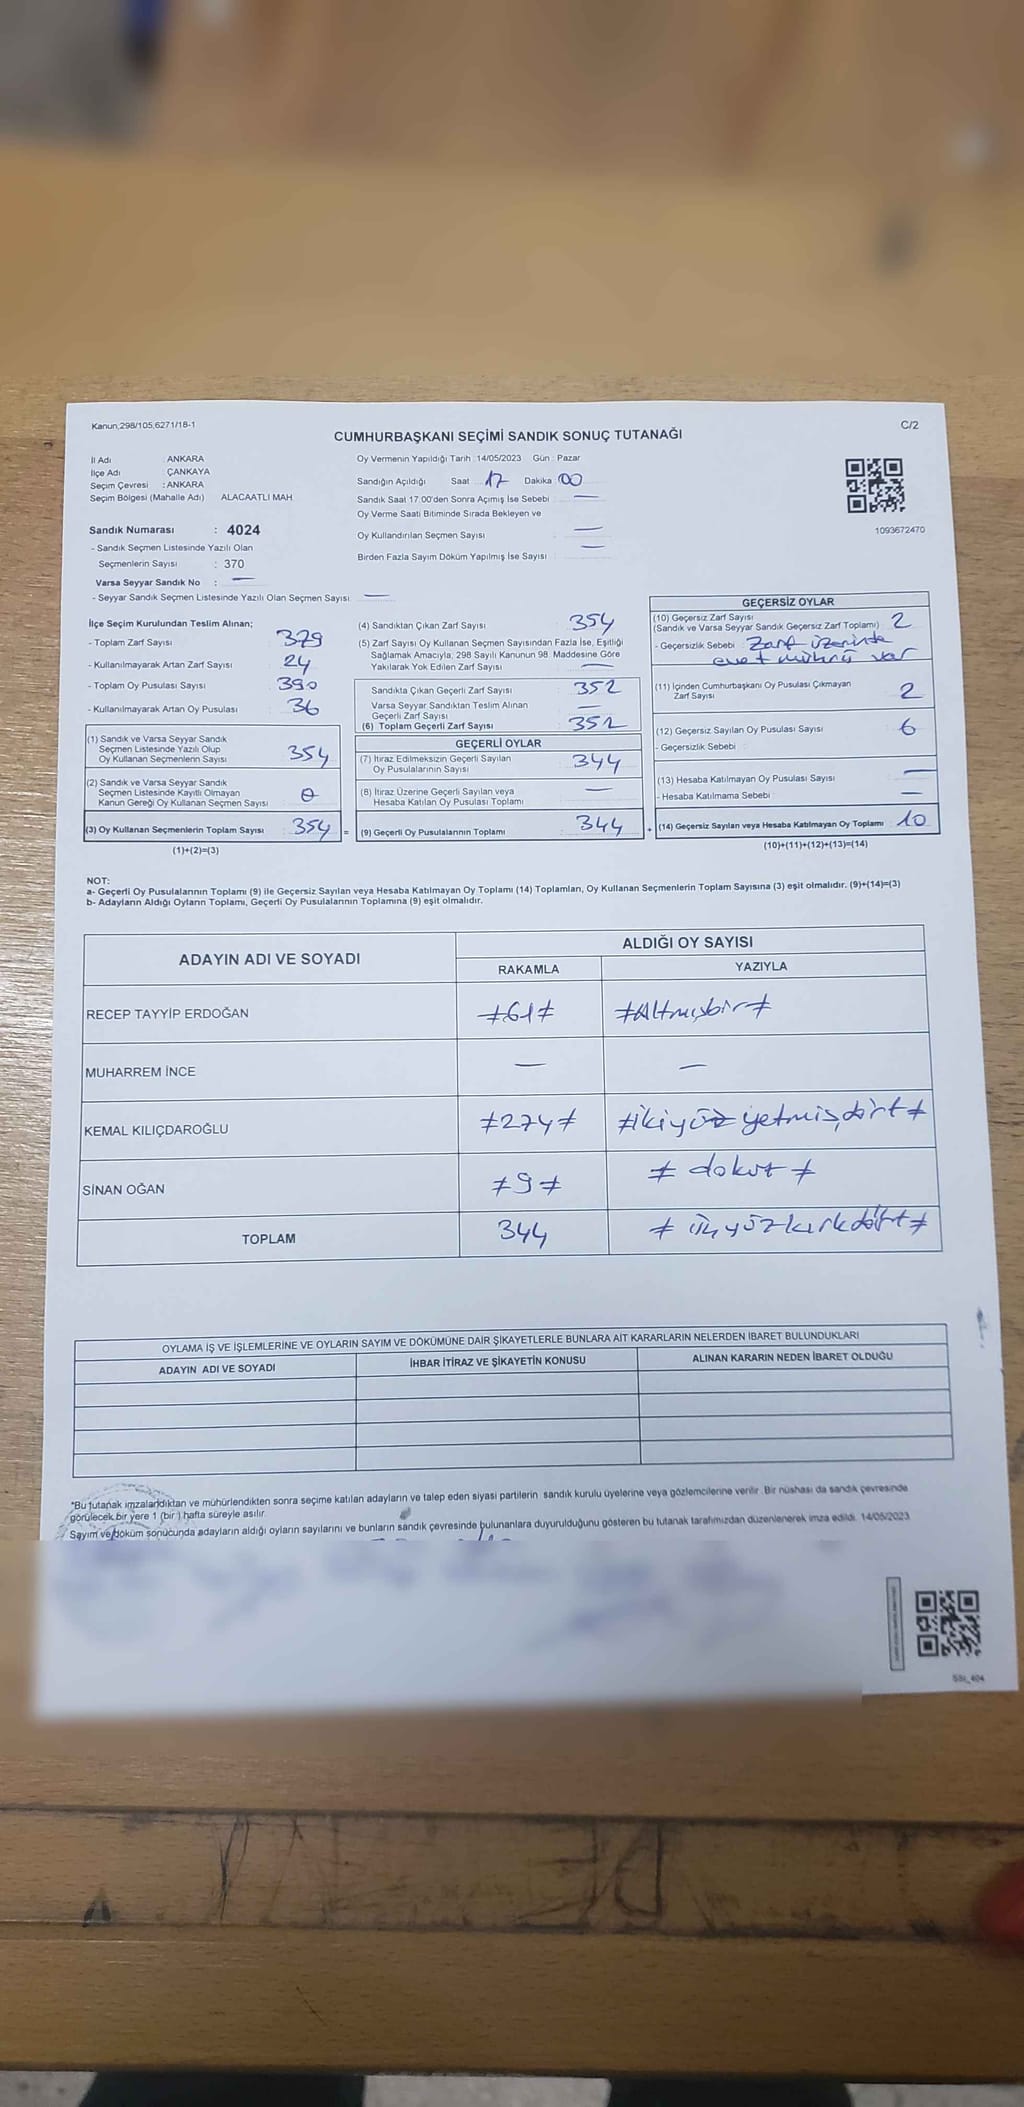 Kanun,298/105,6271/18-1
C/2
CUMHURBAŞKANI SEÇİMİ SANDIK SONUÇ TUTANAĞI
İl Adı : ANKARA
İlçe Adı : ÇANKAYA
Seçim Çevresi : ANKARA
Seçim Bölgesi (Mahalle Adı) ALACAATLI MAH.
Sandık Numarası : 4024
- Sandık Seçmen Listesinde Yazılı Olan
Seçmenlerin Sayısı : 370
Varsa Seyyar Sandık No : —
- Seyyar Sandık Seçmen Listesinde Yazılı Olan Seçmen Sayısı —
Oy Vermenin Yapıldığı Tarih : 14/05/2023 Gün : Pazar
Sandığın Açıldığı Saat 17 Dakika 00
Sandık Saat 17:00'den Sonra Açımış İse Sebebi —
Oy Verme Saati Bitiminde Sırada Bekleyen ve
Oy Kullandırılan Seçmen Sayısı —
Birden Fazla Sayım Döküm Yapılmış İse Sayısı —
1093672470
İlçe Seçim Kurulundan Teslim Alınan;
- Toplam Zarf Sayısı 379
- Kullanılmayarak Artan Zarf Sayısı 24
- Toplam Oy Pusulası Sayısı 390
- Kullanılmayarak Artan Oy Pusulası 36
(1) Sandık ve Varsa Seyyar Sandık
Seçmen Listesinde Yazılı Olup
Oy Kullanan Seçmenlerin Sayısı 354
(2) Sandık ve Varsa Seyyar Sandık
Seçmen Listesinde Kayıtlı Olmayan
Kanun Gereği Oy Kullanan Seçmen Sayısı 0
(3) Oy Kullanan Seçmenlerin Toplam Sayısı 354 =
(1)+(2)=(3)
(4) Sandıktan Çıkan Zarf Sayısı 354
(5) Zarf Sayısı Oy Kullanan Seçmen Sayısından Fazla İse, Eşitliği
Sağlamak Amacıyla, 298 Sayılı Kanunun 98. Maddesine Göre
Yakılarak Yok Edilen Zarf Sayısı —
Sandıkta Çıkan Geçerli Zarf Sayısı 352
Varsa Seyyar Sandıktan Teslim Alınan
Geçerli Zarf Sayısı —
(6) Toplam Geçerli Zarf Sayısı 352
GEÇERLİ OYLAR
(7) İtiraz Edilmeksizin Geçerli Sayılan
Oy Pusulalarının Sayısı 344
(8) İtiraz Üzerine Geçerli Sayılan veya
Hesaba Katılan Oy Pusulası Toplamı —
(9) Geçerli Oy Pusulalarının Toplamı 344 +
GEÇERSİZ OYLAR
(10) Geçersiz Zarf Sayısı
(Sandık ve Varsa Seyyar Sandık Geçersiz Zarf Toplamı) 2
- Geçersizlik Sebebi Zarf üzerinde
evet mührü var
(11) İçinden Cumhurbaşkanı Oy Pusulası Çıkmayan
Zarf Sayısı 2
(12) Geçersiz Sayılan Oy Pusulası Sayısı 6
- Geçersizlik Sebebi :
(13) Hesaba Katılmayan Oy Pusulası Sayısı —
- Hesaba Katılmama Sebebi —
(14) Geçersiz Sayılan veya Hesaba Katılmayan Oy Toplamı : 10
(10)+(11)+(12)+(13)=(14)
NOT:
a- Geçerli Oy Pusulalarının Toplamı (9) ile Geçersiz Sayılan veya Hesaba Katılmayan Oy Toplamı (14) Toplamları, Oy Kullanan Seçmenlerin Toplam Sayısına (3) eşit olmalıdır. (9)+(14)=(3)
b- Adayların Aldığı Oyların Toplamı, Geçerli Oy Pusulalarının Toplamına (9) eşit olmalıdır.
ADAYIN ADI VE SOYADI
ALDIĞI OY SAYISI
RAKAMLA YAZIYLA
RECEP TAYYİP ERDOĞAN ≠61≠ ≠Altmışbir≠
MUHARREM İNCE — —
KEMAL KILIÇDAROĞLU ≠274≠ ≠ikiyüz yetmişdört≠
SİNAN OĞAN ≠9≠ ≠ dokuz ≠
TOPLAM 344 ≠ üçyüzkırkdört≠
OYLAMA İŞ VE İŞLEMLERİNE VE OYLARIN SAYIM VE DÖKÜMÜNE DAİR ŞİKAYETLERLE BUNLARA AİT KARARLARIN NELERDEN İBARET BULUNDUKLARI
ADAYIN ADI VE SOYADI İHBAR İTİRAZ VE ŞİKAYETİN KONUSU ALINAN KARARIN NEDEN İBARET OLDUĞU
*Bu tutanak imzalandıktan ve mühürlendikten sonra seçime katılan adayların ve talep eden siyasi partilerin sandık kurulu üyelerine veya gözlemcilerine verilir. Bir nüshası da sandık çevresinde
görülecek bir yere 1 (bir) hafta süreyle asılır.
Sayım ve döküm sonucunda adayların aldığı oyların sayılarını ve bunların sandık çevresinde bulunanlara duyurulduğunu gösteren bu tutanak tarafımızdan düzenlenerek imza edildi. 14/05/2023